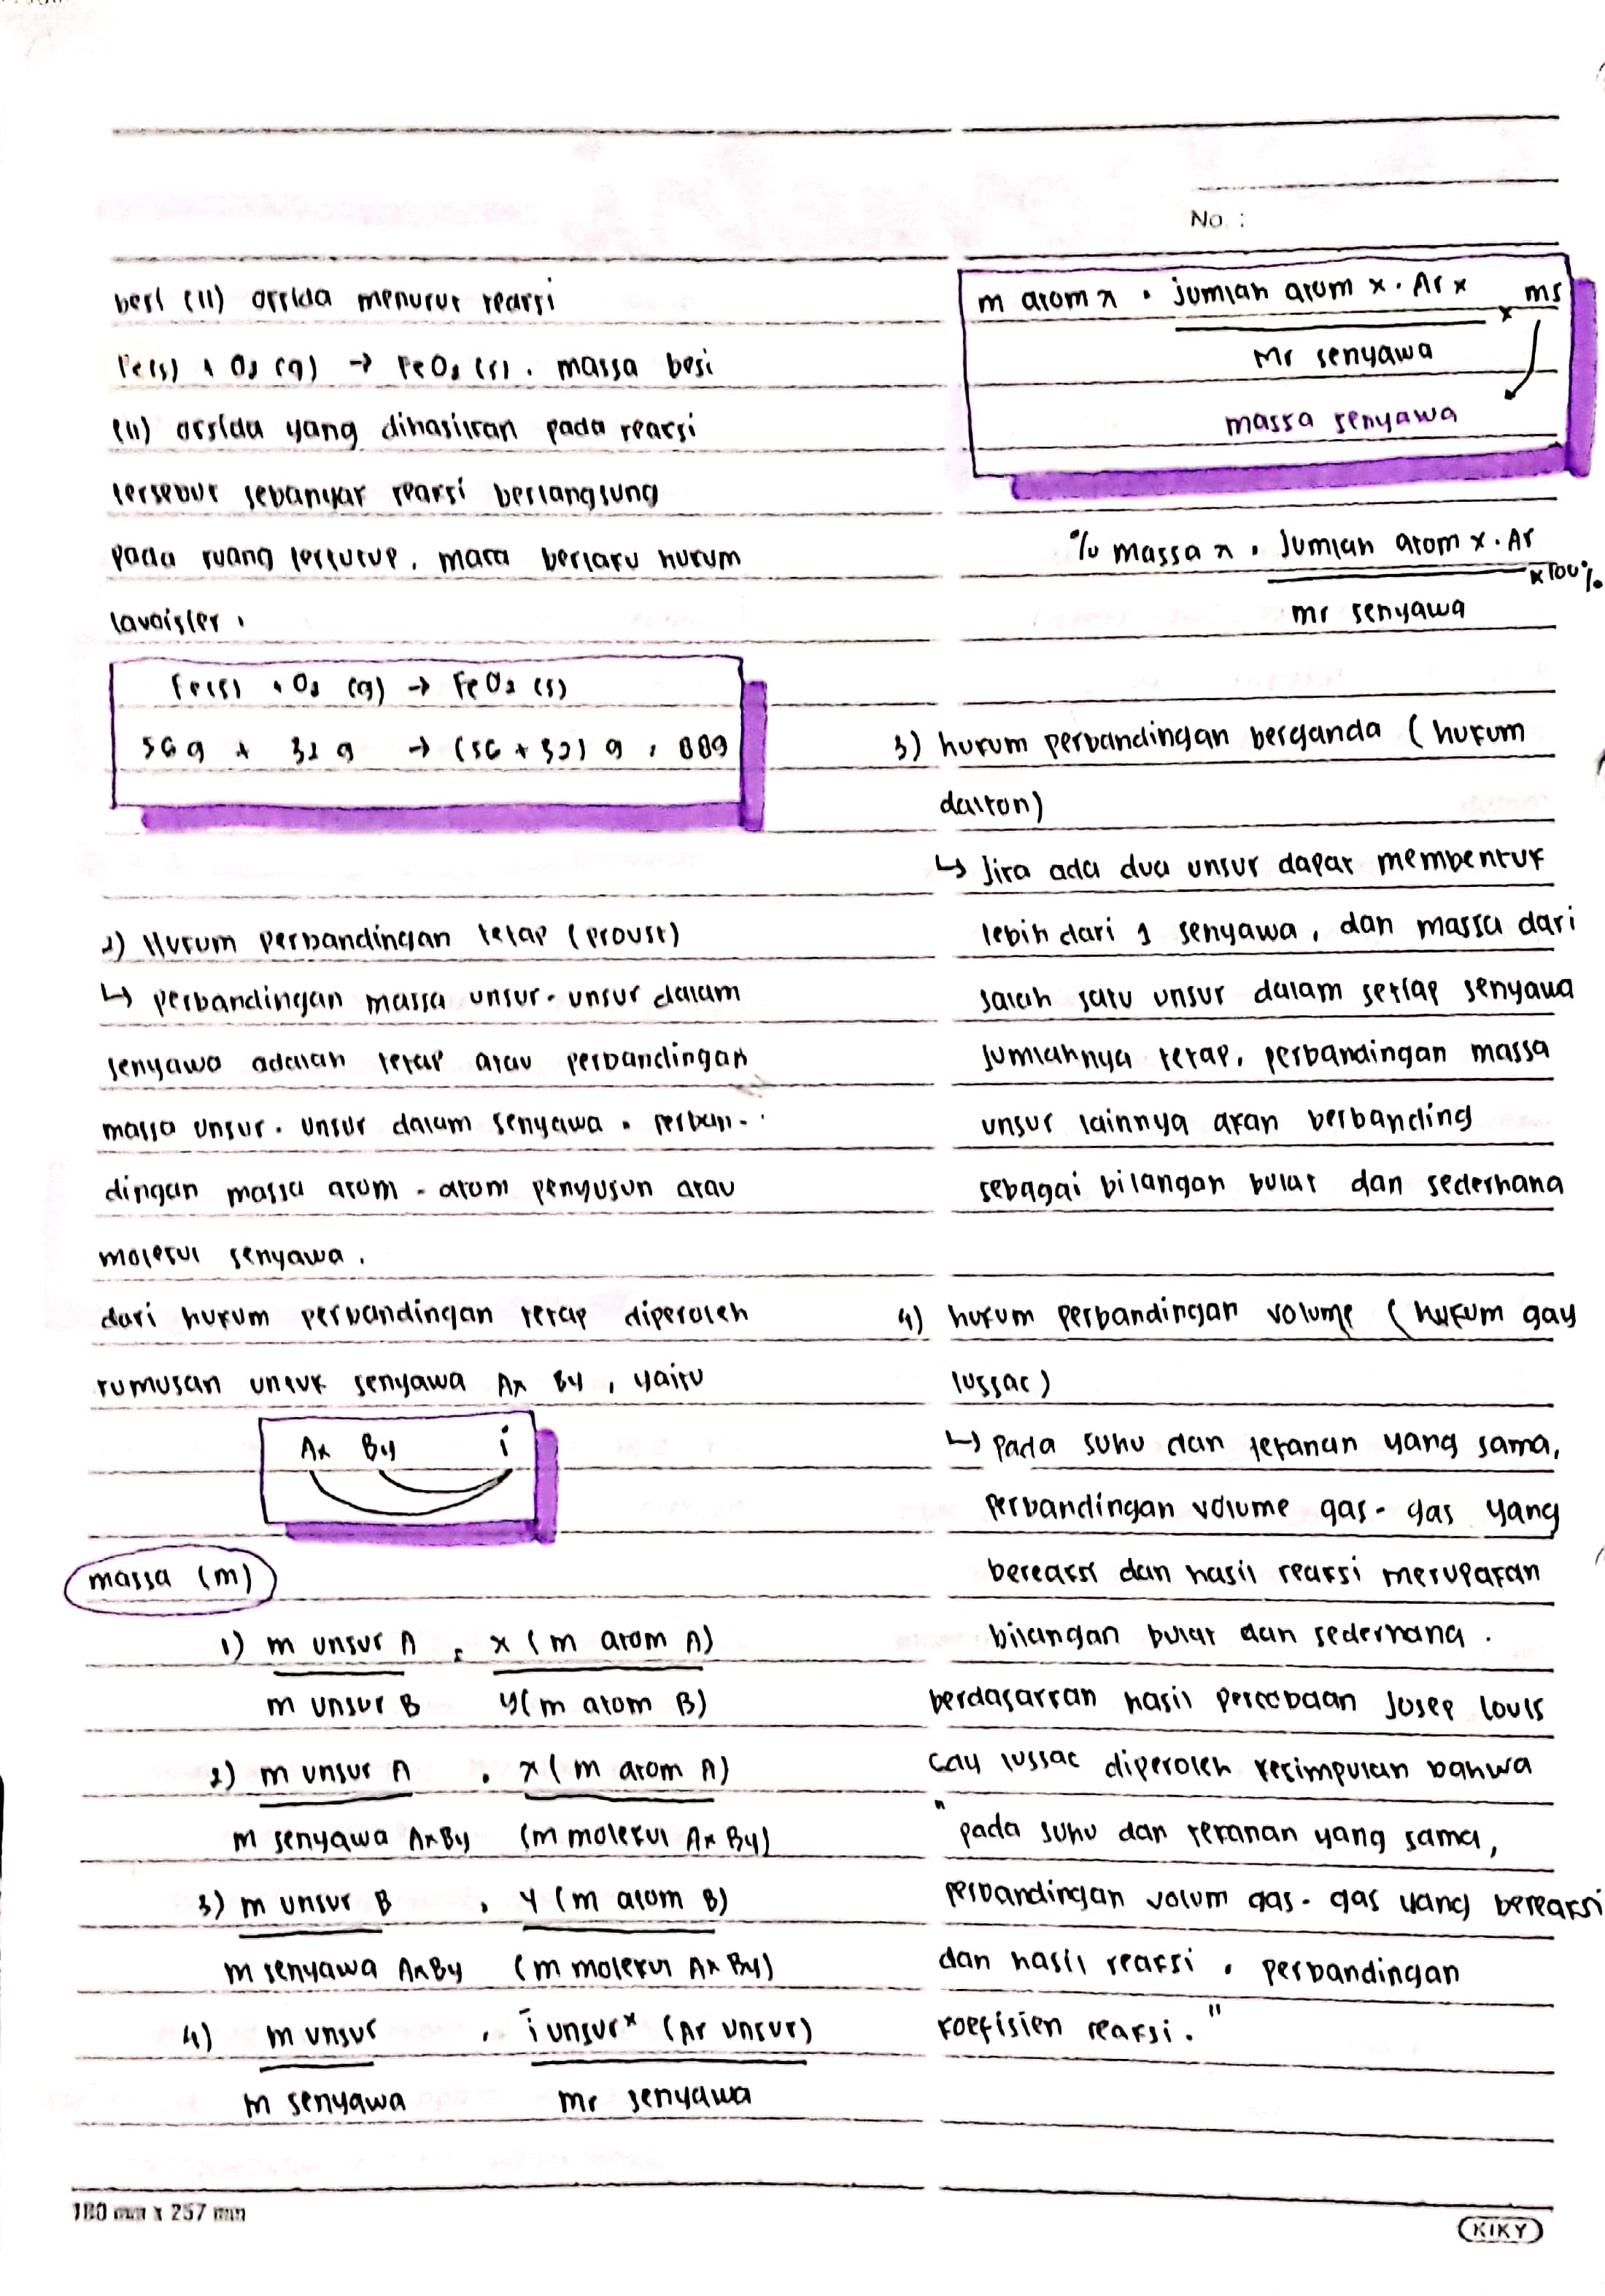 No. :
besi (II) oksida menurut reaksi
Fe(s) + O2 (g) → FeO2 (s). massa besi
(II) oksida yang dihasilkan pada reaksi
tersebut sebanyak reaksi berlangsung
pada ruang tertutup, maka berlaku hukum
lavoisier.
Fe(s) + O2 (g) → FeO2 (s)
56 g + 32 g → (56 + 32) g = 88g
2) Hukum perbandingan tetap (proust)
↳ perbandingan massa unsur-unsur dalam
senyawa adalah tetap atau perbandingan
massa unsur-unsur dalam senyawa = perban-
dingan massa atom-atom penyusun atau
molekul senyawa.
dari hukum perbandingan tetap diperoleh
rumusan untuk senyawa Ax By, yaitu
Ax By i
massa (m)
1) m unsur A = x (m atom A)
m unsur B y(m atom B)
2) m unsur A = x (m atom A)
m senyawa AxBy (m molekul Ax By)
3) m unsur B = y (m atom B)
m senyawa AxBy (m molekul Ax By)
4) m unsur = i unsur x (Ar unsur)
m senyawa mr senyawa
m atom x = jumlah atom x . Ar x x ms
Mr senyawa
massa senyawa
% massa x = Jumlah atom x . Ar x 100%
mr senyawa
3) hukum perbandingan berganda (hukum
dalton)
↳ Jika ada dua unsur dapat membentuk
lebih dari 1 senyawa, dan massa dari
salah satu unsur dalam setiap senyawa
Jumlahnya tetap, perbandingan massa
unsur lainnya akan berbanding
sebagai bilangan bulat dan sederhana
4) hukum perbandingan volume (hukum gay
lussac)
↳ pada suhu dan tekanan yang sama,
perbandingan volume gas-gas yang
bereaksi dan hasil reaksi merupakan
bilangan bulat dan sederhana.
berdasarkan hasil percobaan Josep Louis
Gay lussac diperoleh kesimpulan bahwa
"pada suhu dan tekanan yang sama,
perbandingan volum gas-gas yang bereaksi
dan hasil reaksi = perbandingan
koefisien reaksi."
180 mm x 257 mm
KIKY